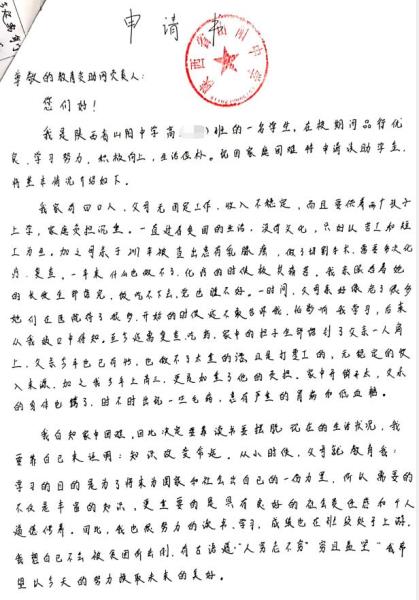 申请书
陕西省山阳中学
尊敬的教育资助网负责人:
您们好!
我是陕西省山阳中学高 班的一名学生。在校期间品行优
良、学习努力、积极向上,生活俭朴。现因家庭困难特申请资助学金。
将基本情况介绍如下。
我家有四口人,父母无固定工作,收入不稳定,而且要供着两个孩子
上学,家庭负担沉重。一直过着贫困的生活,没有文化,只好以苦工和技
工为业。加之母亲于 年被查出患有乳腺癌,做了切割手术,需要多次化
疗、复查。一年来什么也做不了,化疗的时候极其痛苦。我亲眼看着她
的长发全部落完,饭吃不下去,觉也睡不好。一时间,父母亲好像老了很多
她们在医院待了数月,开始的时候还不敢告诉我,怕影响我学习,后来
从我 口中得知。至今还需复查、吃药,家中的担子全部落到了父亲一人肩
上,父亲多年也已有病,也做不了太重的活,且是打零工的,无稳定的收
入来源,加之我今年上高三,更是加重了他的负担。家中开销太大,父亲
的身体也 了,时不时出现一些毛病,患有严重的胃病和低血糖。
我自知家中困难,因此决定要靠读书要摆脱现在的生活状况,我
要靠自己来证明:知识改变命运。从小时候,父母就教育我:
学习的目的是为了将来为国家和社会出自己的一份力量,所以需要的
不仅是丰富的知识,更重要的是具有良好的社会责任感和个人
道德修养。因此,我也很努力的读书、学习,成绩也在班级处于上游,
我想自己不会被贫困所击倒,有古语道:“人穷志不穷”穷且益坚”我希
望以今天的努力换取未来的美好。